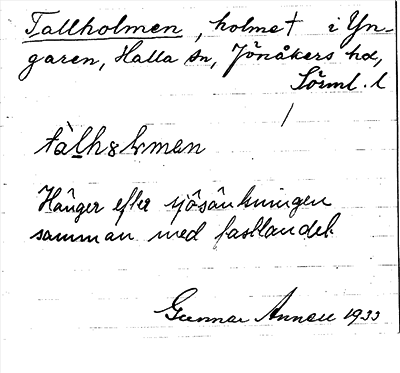 Tallholmen, holmet i Yn-
garen, Halla sn, Jönåkers hd,
Sörml. l
/
tàlhɷlmen
Hänger efter sjösänkningen
samman med fastlandet
Gunnar Annell 1933